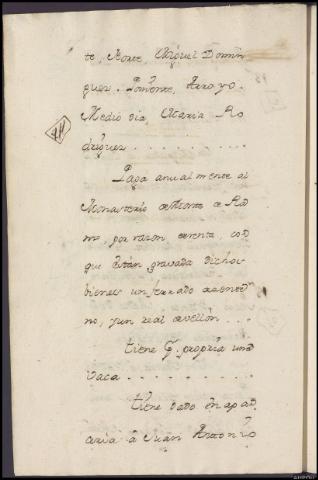 te, Norte, Miguel Domin
guez. Poniente, Arroyo.
Medio dia, Maria Ro
driguez . . . . . . . .
Paga anualmente al
Monasterio de Monte de Ra
mo, por razon de renta con
que están gravada dichos
bienes un ferrado de zente
no, y un real de vellón . . .
tiene p.r propria una
Vaca . . . . . . . . .
tiene dado en apad
aria á Juan Antonio